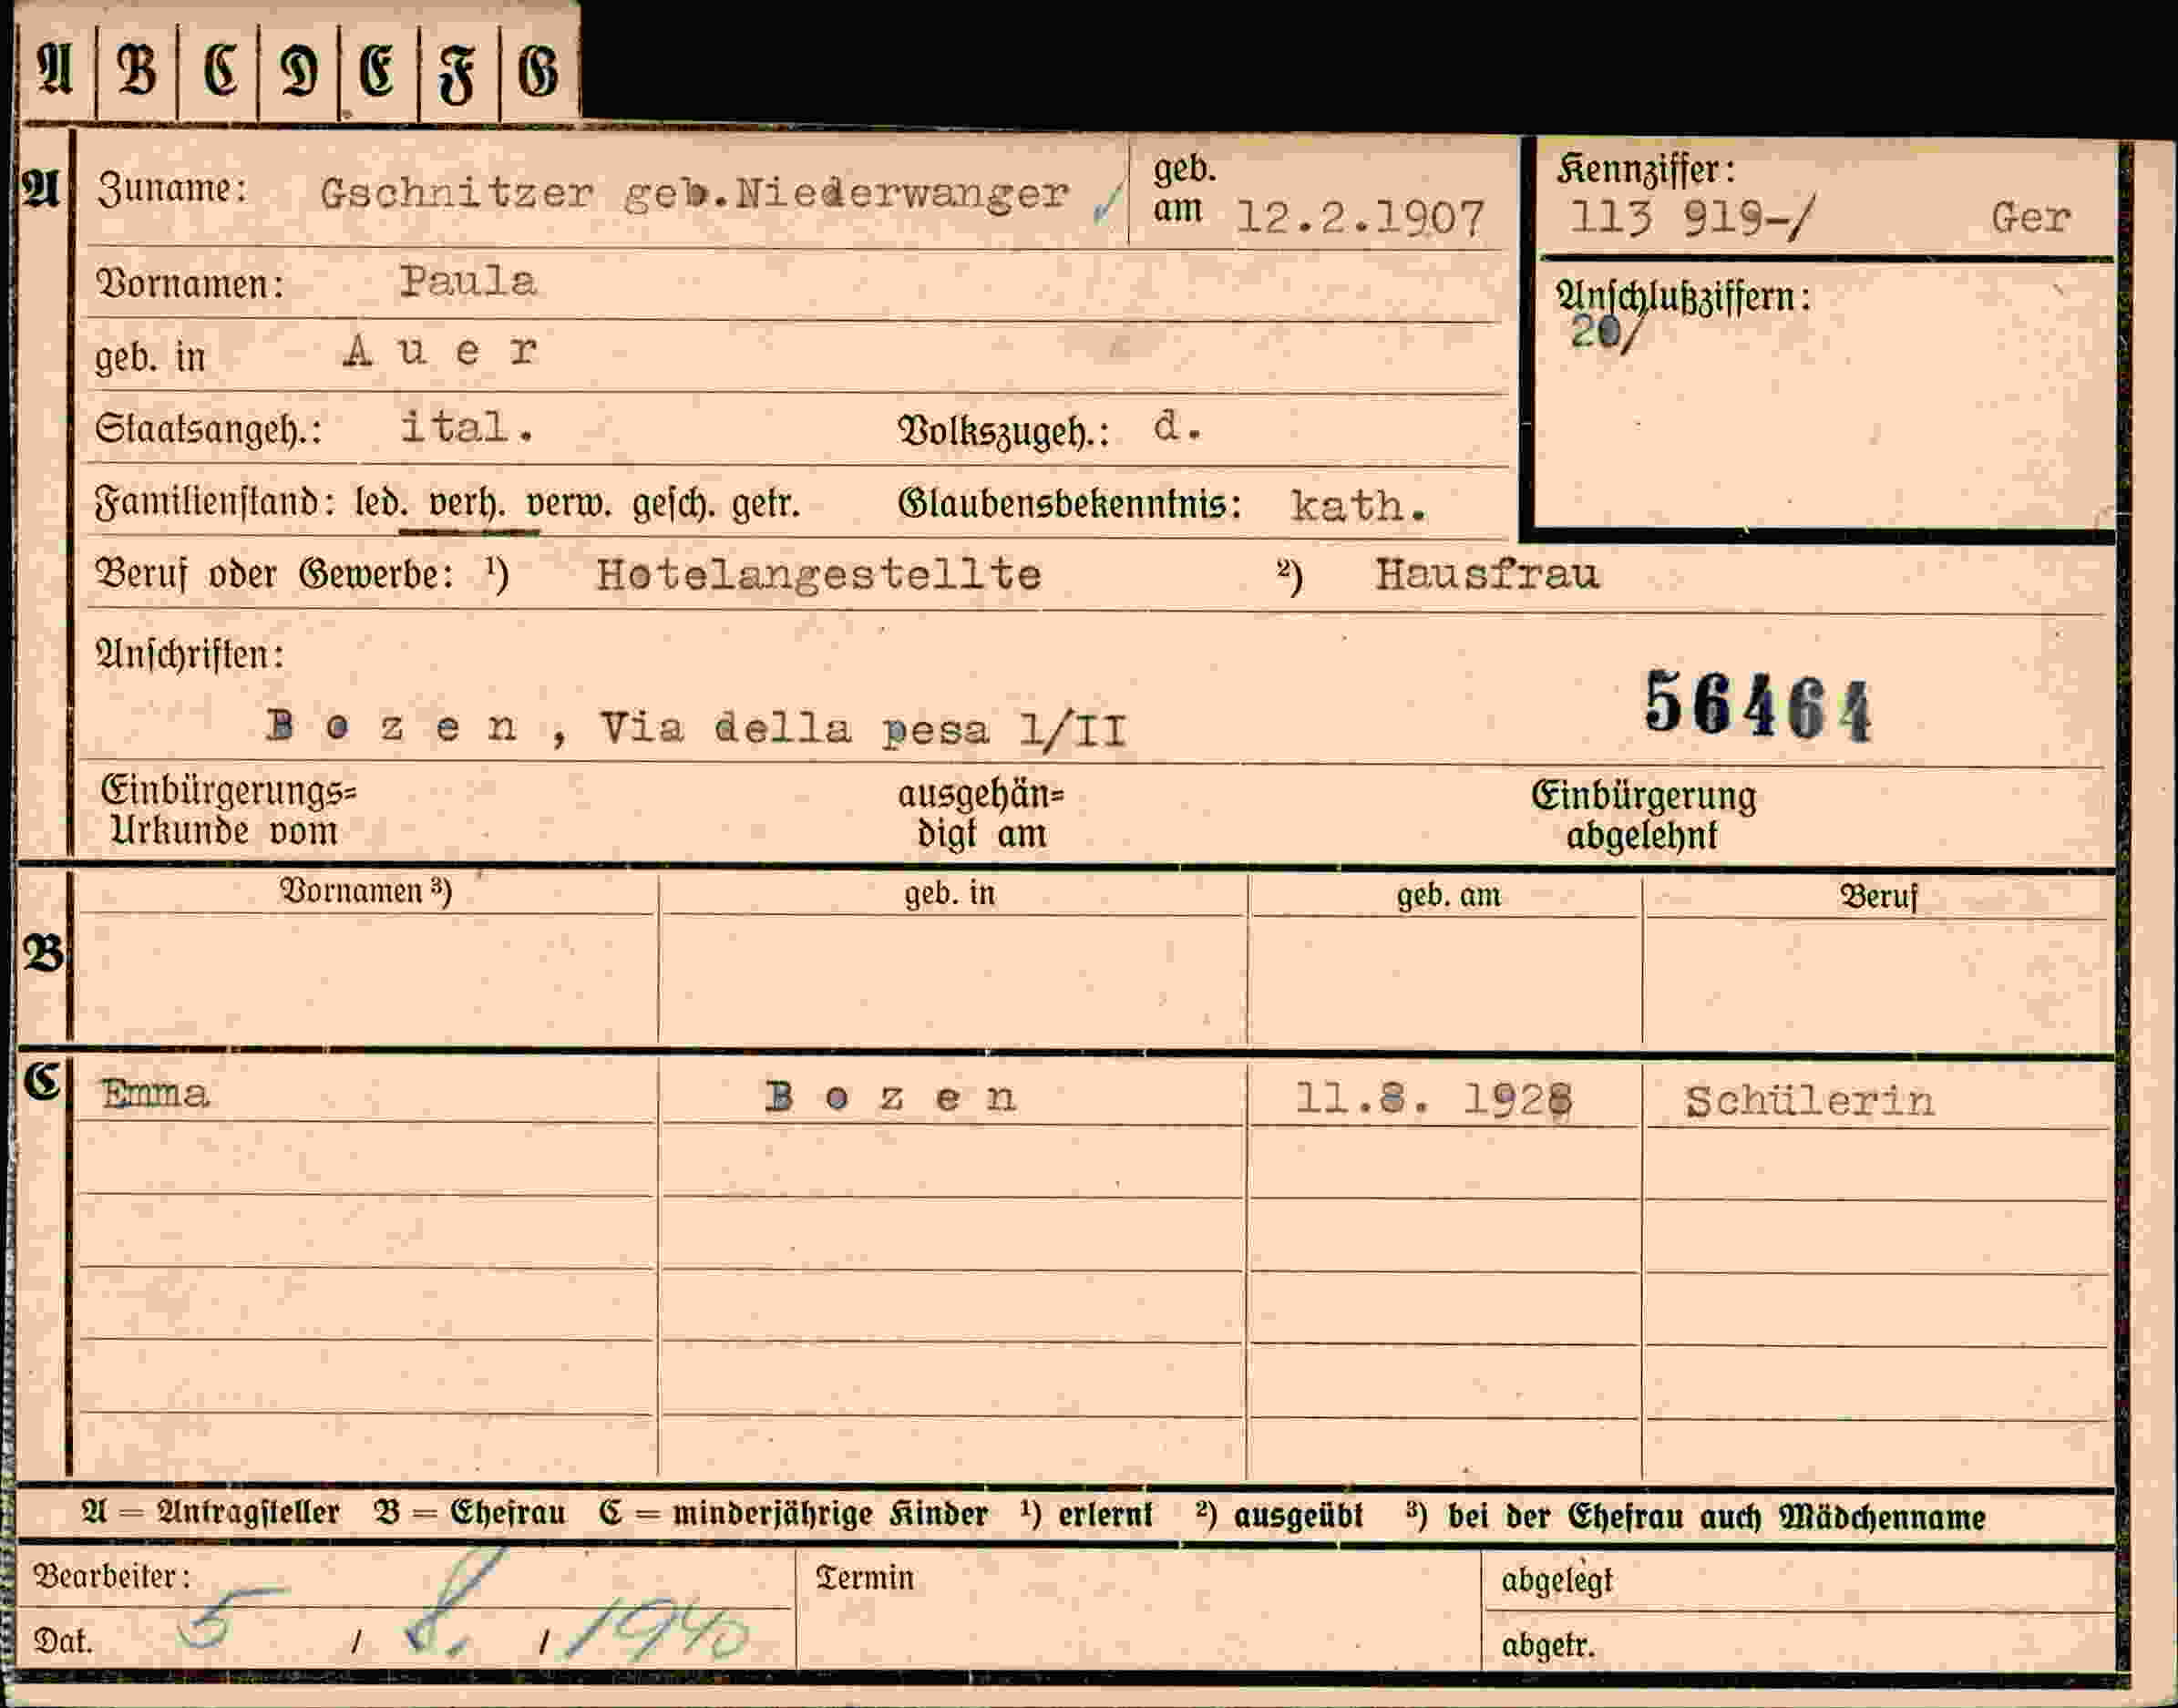 A B C D E F G
A Zuname: Gschnitzer geb.Niederwanger ✓ geb. am 12.2.1907
Kennziffer: 113 919-/ Ger
Vornamen: Paula
Anschlußziffern: 20/
geb. in Auer
Staatsangeh.: ital. Volkszugeh.: d.
Familienstand: led. verh. verw. gesch. getr. Glaubensbekenntnis: kath.
Beruf oder Gewerbe: ¹) Hotelangestellte ²) Hausfrau
Anschriften:
56464
Bozen, Via della pesa 1/II
Einbürgerungs= ausgehän= Einbürgerung
Urkunde vom digt am abgelehnt
Vornamen ³) geb. in geb. am Beruf
B
C Emma Bozen 11.8. 1928 Schülerin
A = Antragsteller B = Ehefrau C = minderjährige Kinder ¹) erlernt ²) ausgeübt ³) bei der Ehefrau auch Mädchenname
Bearbeiter: Termin abgelegt
Dat. 5 / 8. / 1940 abgetr.